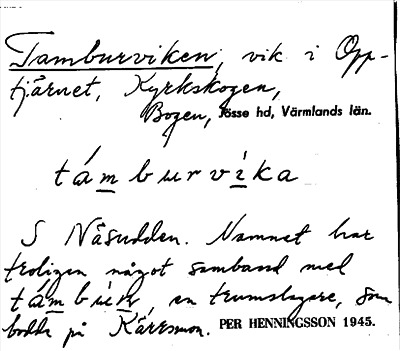 Tamburviken, vik i Opp-
tjärnet, Kyrkskogen,
Bogen, Jösse hd, Värmlands län.
támburvìka
S Näsudden. Namnet har
troligen något samband med
támbúrn, en trumslagare, som
bodde på Kärrsmon. PER HENNINGSSON 1945.